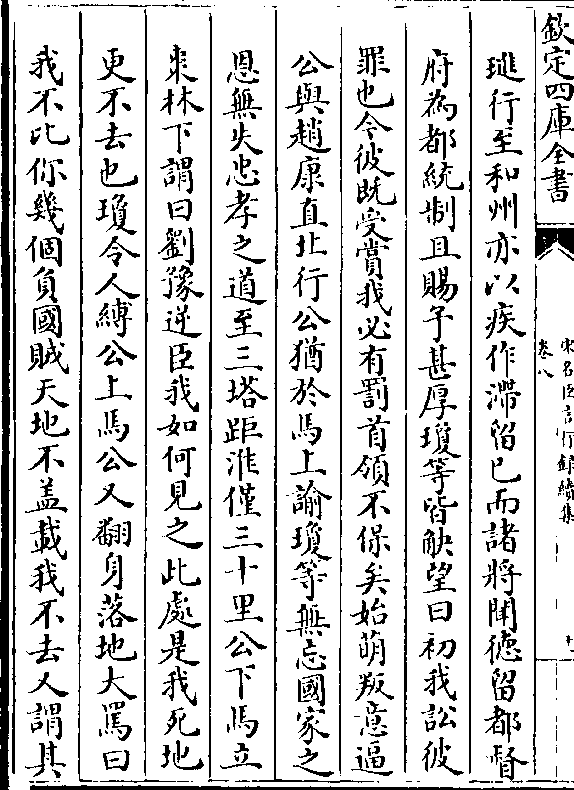 欽定四庫全書
宋名臣言行錄續集
卷八
十
璡行至和州亦以疾作滯留已而諸將聞德留都督
府為都統制且賜予甚厚瓊等皆觖望曰初我訟彼
罪也今彼既受賞我必有罰首領不保矣始萌叛意逼
公與趙康直北行公猶於馬上諭瓊等無忘國家之
恩無失忠孝之道至三塔距淮僅三十里公下馬立
棗林下謂曰劉豫逆臣我如何見之此處是我死地
更不去也瓊令人縛公上馬公又翻身落地大罵曰
我不比你幾個負國賊天地不盖載我不去又謂其